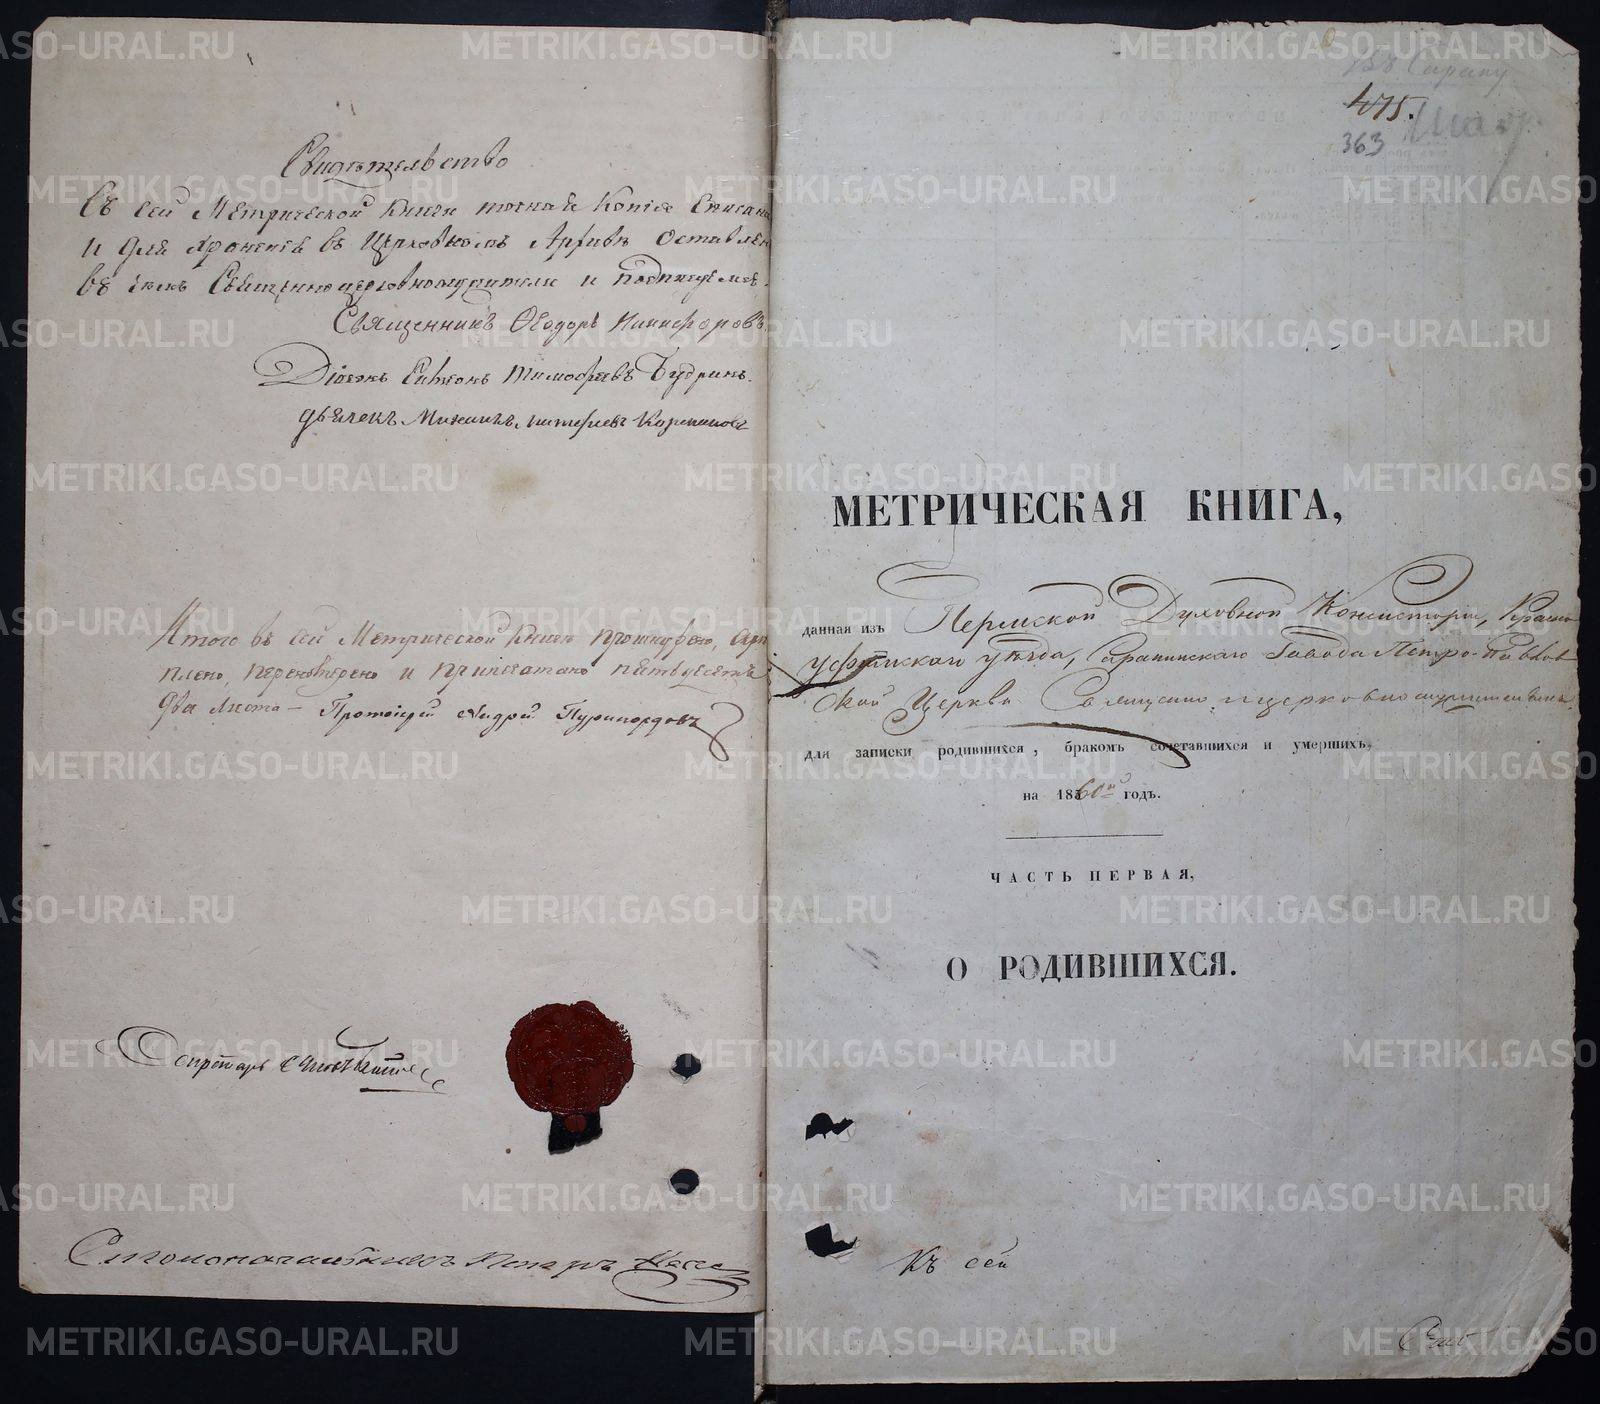 Свидѣтельство
Съ сей Метрической книги точная копія списана
и для храненія въ Церковномъ Архивѣ оставлена
въ чемъ Священноцерковнослужители и подписуемся.
Священникъ Ѳеодоръ Никифоровъ
Діаконъ Тимофѣевъ Будринъ.
дьячекъ Михаилъ
Итого въ сей Метрической книгѣ прошнуровано, скрѣ
плено, перенумеровано и припечатано пятьдесятъ
два листа – Протоіерей Андрей
Секретарь
Столоначальникъ
въ Сарану
475.
363
МЕТРИЧЕСКАЯ КНИГА,
данная изъ Пермской Духовной Консисторіи, Красно
уфимскаго уѣзда, Саранинскаго Завода Петро-Павлов
ской Церкви Священно-церковнослужителямъ
для записки родившихся, бракомъ сочетавшихся и умершихъ,
на 1860й годъ.
ЧАСТЬ ПЕРВАЯ,
О РОДИВШИХСЯ.
Къ сей
METRIKI.GASO-URAL.RU